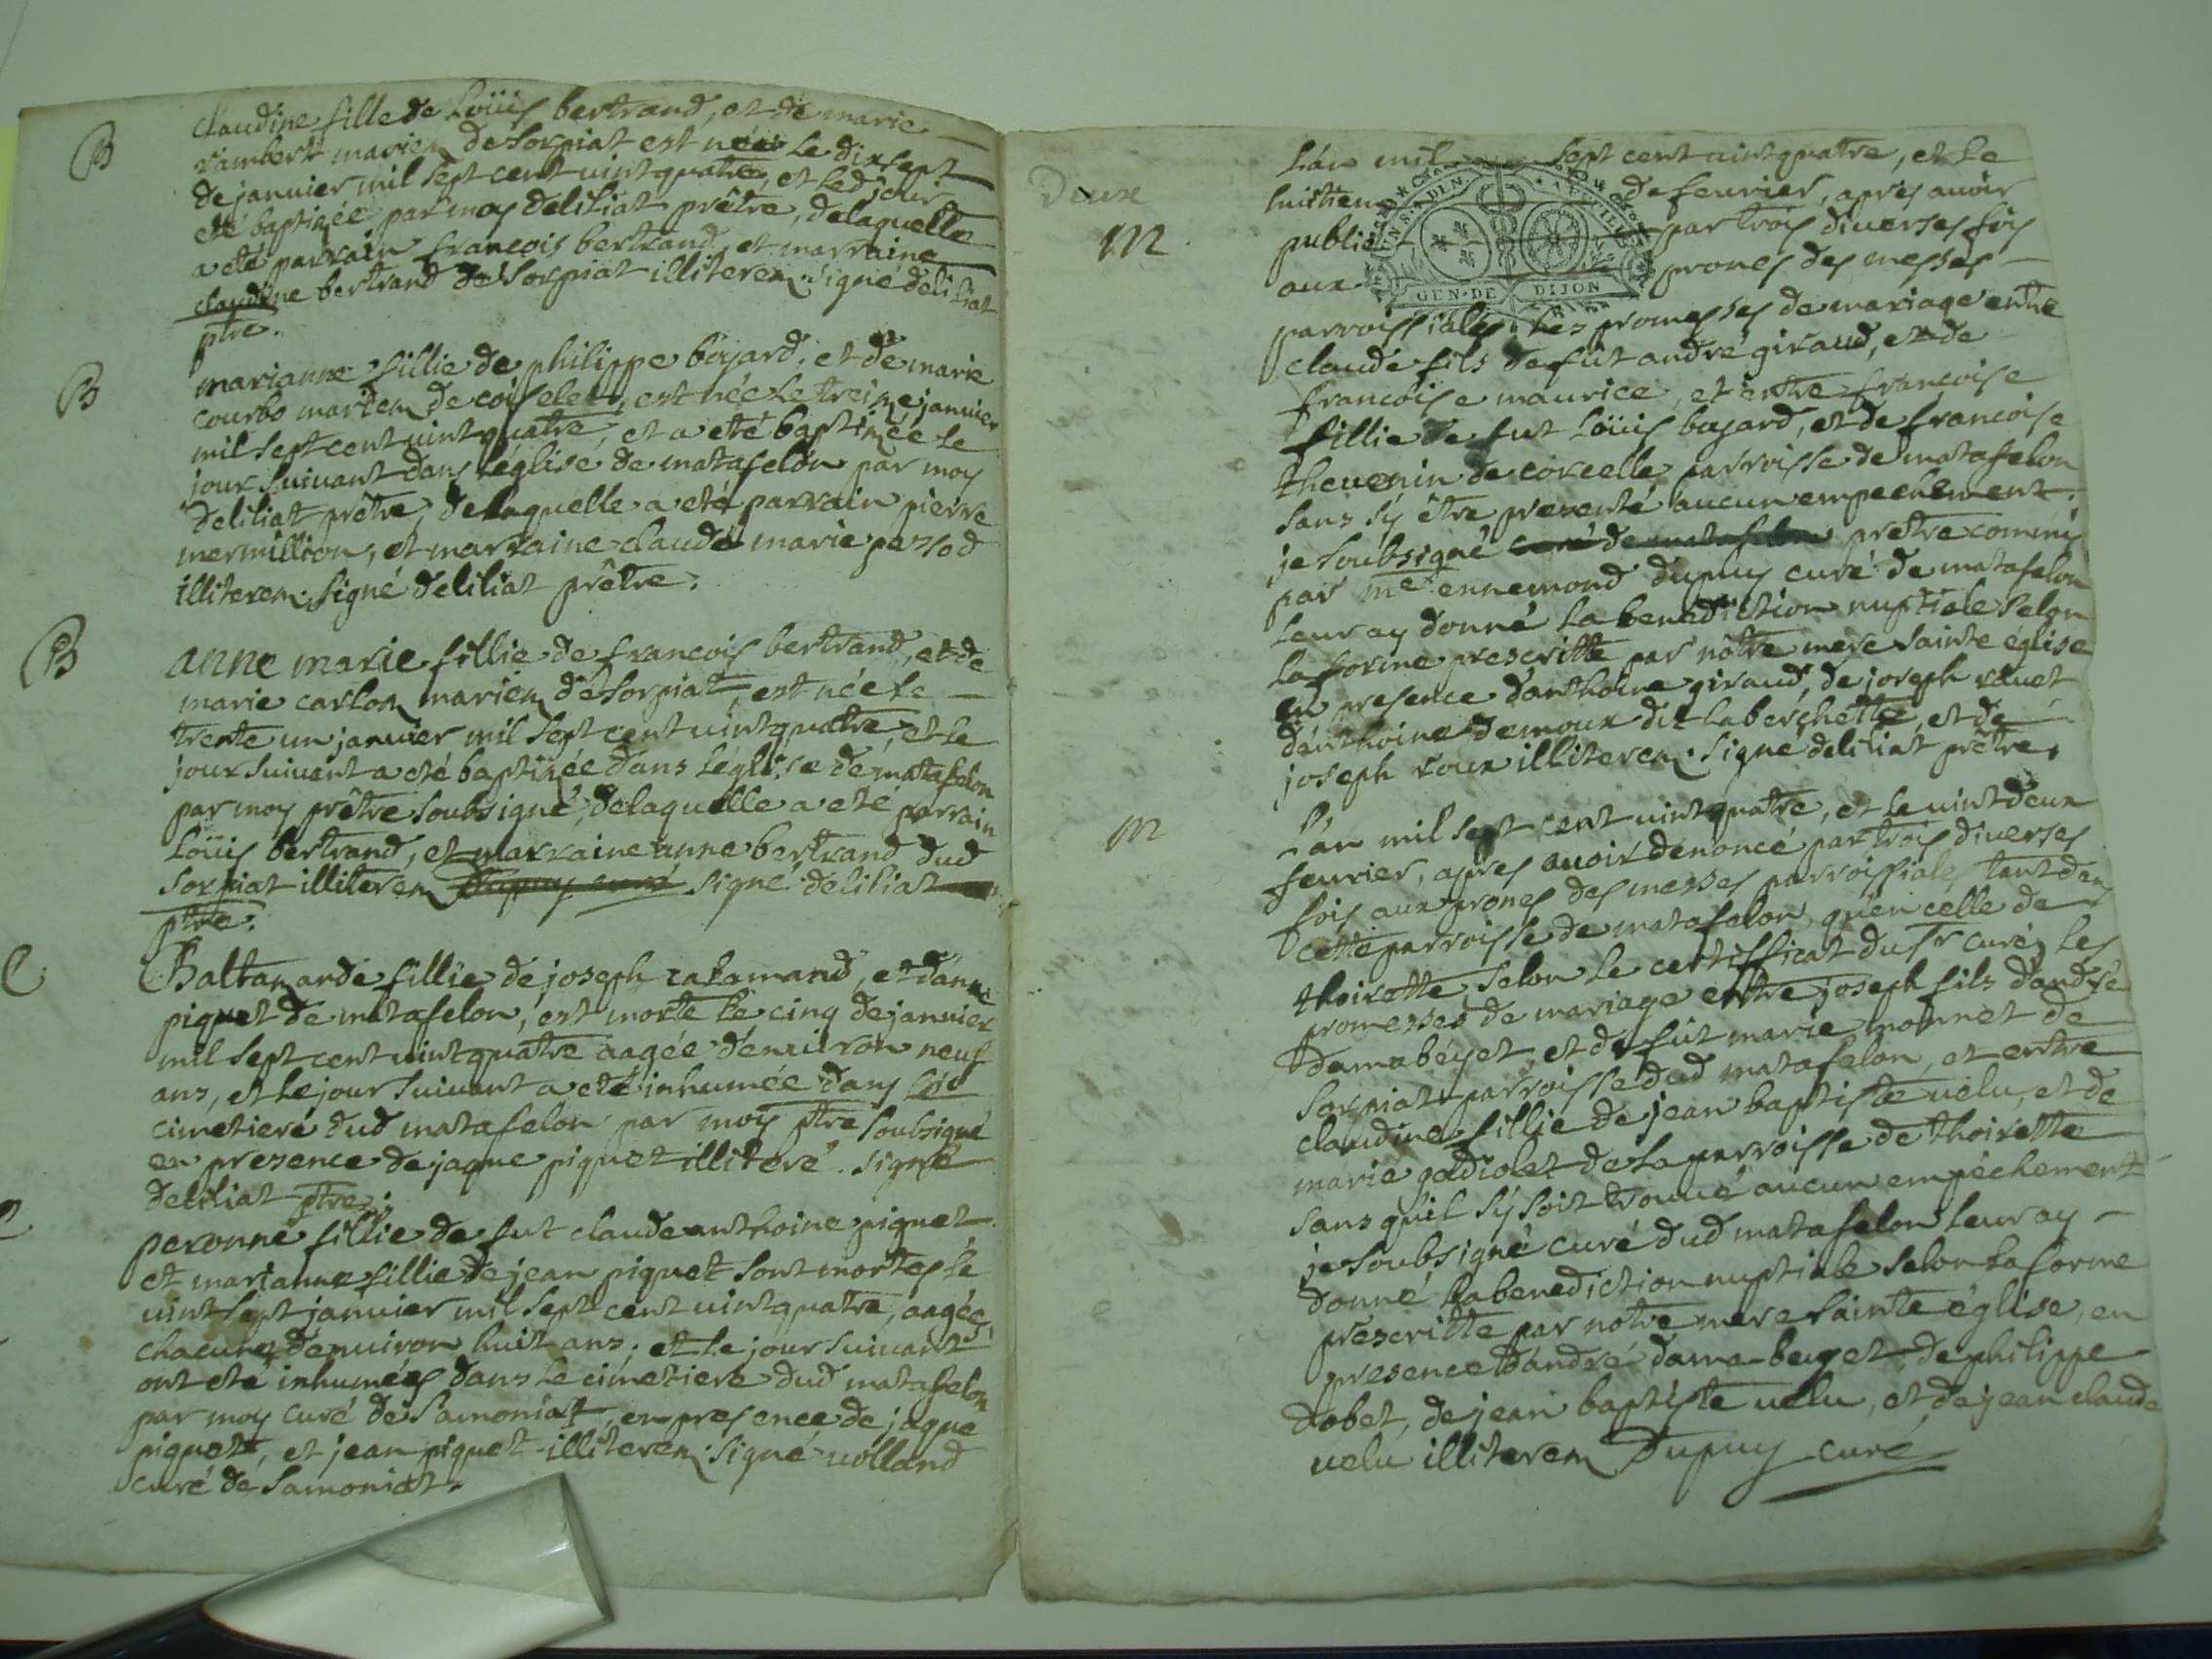 B
claudine fille de Loüis bertrand, et de marie
rambert mariez de sorpiat est née le dixsept
de januier mil sept cent uint quatre, et led jour
eté baptizée par moy deliliat prêtre, delaquelle
a eté parrain francois bertrand, et marraine
claudine bertrand de sorpiat illiterez. signé deliliat
ptre.
B
marianne fillie de philippe boyard, et de marie
courbo mariez de coiselet, est née le treize januier
mil sept cent uint quatre, et a eté baptizée le
jour suiuant dans l'église de matafelon par moy
deliliat prêtre, delaquelle a eté parrain pierre
mermillion, et marraine claude marie perrod
illiterez. signé deliliat prêtre.
B
anne marie fillie de francois bertrand, et de
marie carlon mariez de sorpiat, est née le
trente un januier mil sept cent uint quatre, et le
jour suiuant a eté baptizée dans l'église de matafelon
par moy prêtre soubsigné, delaquelle a eté parrain
Loüis bertrand, et marraine anne bertrand dud
sorpiat illiterez Dupuy curé signé deliliat
ptre.
C
Baltazarde fillie de joseph calamand, et d'anne
piquet de matafelon, est morte le cinq de januier
mil sept cent uint quatre aagée d'enuiron neuf
ans, et le jour suiuant a eté inhumée dans le
cimetiere dud matafelon par moy ptre soubsigné
en presence de jaque piquet illiteré. signé
deliliat ptre.
peronne fillie de fut claude anthoine piquet
et marianne fillie de jean piquet sont mortes le
uint sept januier mil sept cent uint quatre, aagées
chacune denuiron huit ans, et le jour suiuant
ont eté inhumées dans le cimetiere dud matafelon
par moy curé de samoniat, en presence de jaque
piquet, et jean piquet illiterez. signé uolland
curé de samoniat.
Deux
M
L'an mil sept cent uint quatre, et le
huitiem de feurier, apres auoir
publié par trois diuerses fois
aux prones des messes
GEN. DE DIJON
parroissiales les promesses de mariage entre
claude fils de fût andré giraud, et de
francoise maurice, et entre francoise
fillie de fut Loüis boyard, et de francoise
theuenin de corcelle parroisse de matafelon
sans s'y être presenté aucun empechement.
je soubsigné curé de matafelon prêtre commis
par me ennemond dupuy curé de matafelon
leur ay donné la benediction nuptiale selon
la forme prescritte par nôtre mere sainte eglise
en presence d'anthoine giraud, de joseph
d'anthoine demoux dit laberchette, et de
joseph roux illiterez. signé deliliat prêtre.
M
L'an mil sept cent uint quatre, et le uint deux
feurier, apres auoir denoncé par trois diuerses
fois aux prones des messes parroissiales tant dans
cette parroisse de matafelon, qu'en celle de
thoirette selon le certifficat du sr curé, les
promesses de mariage entre joseph fils d'andré
damabéyet, et de fût marie monnet de
sorpiat parroisse dud matafelon, et entre
claudine fillie de jean baptiste uelu, et de
marie godiolet de la parroisse de thoirette
sans qu'il s'y soit trouué aucun empéchement
je soubsigné curé dud matafelon leur ay
donné la benediction nuptiale selon la forme
prescritte par notre mere sainte église, en
presence d'andré dama-beyet de philippe
dobet, de jean baptiste uelu, et de jean claude
uelu illiterez Dupuy curé